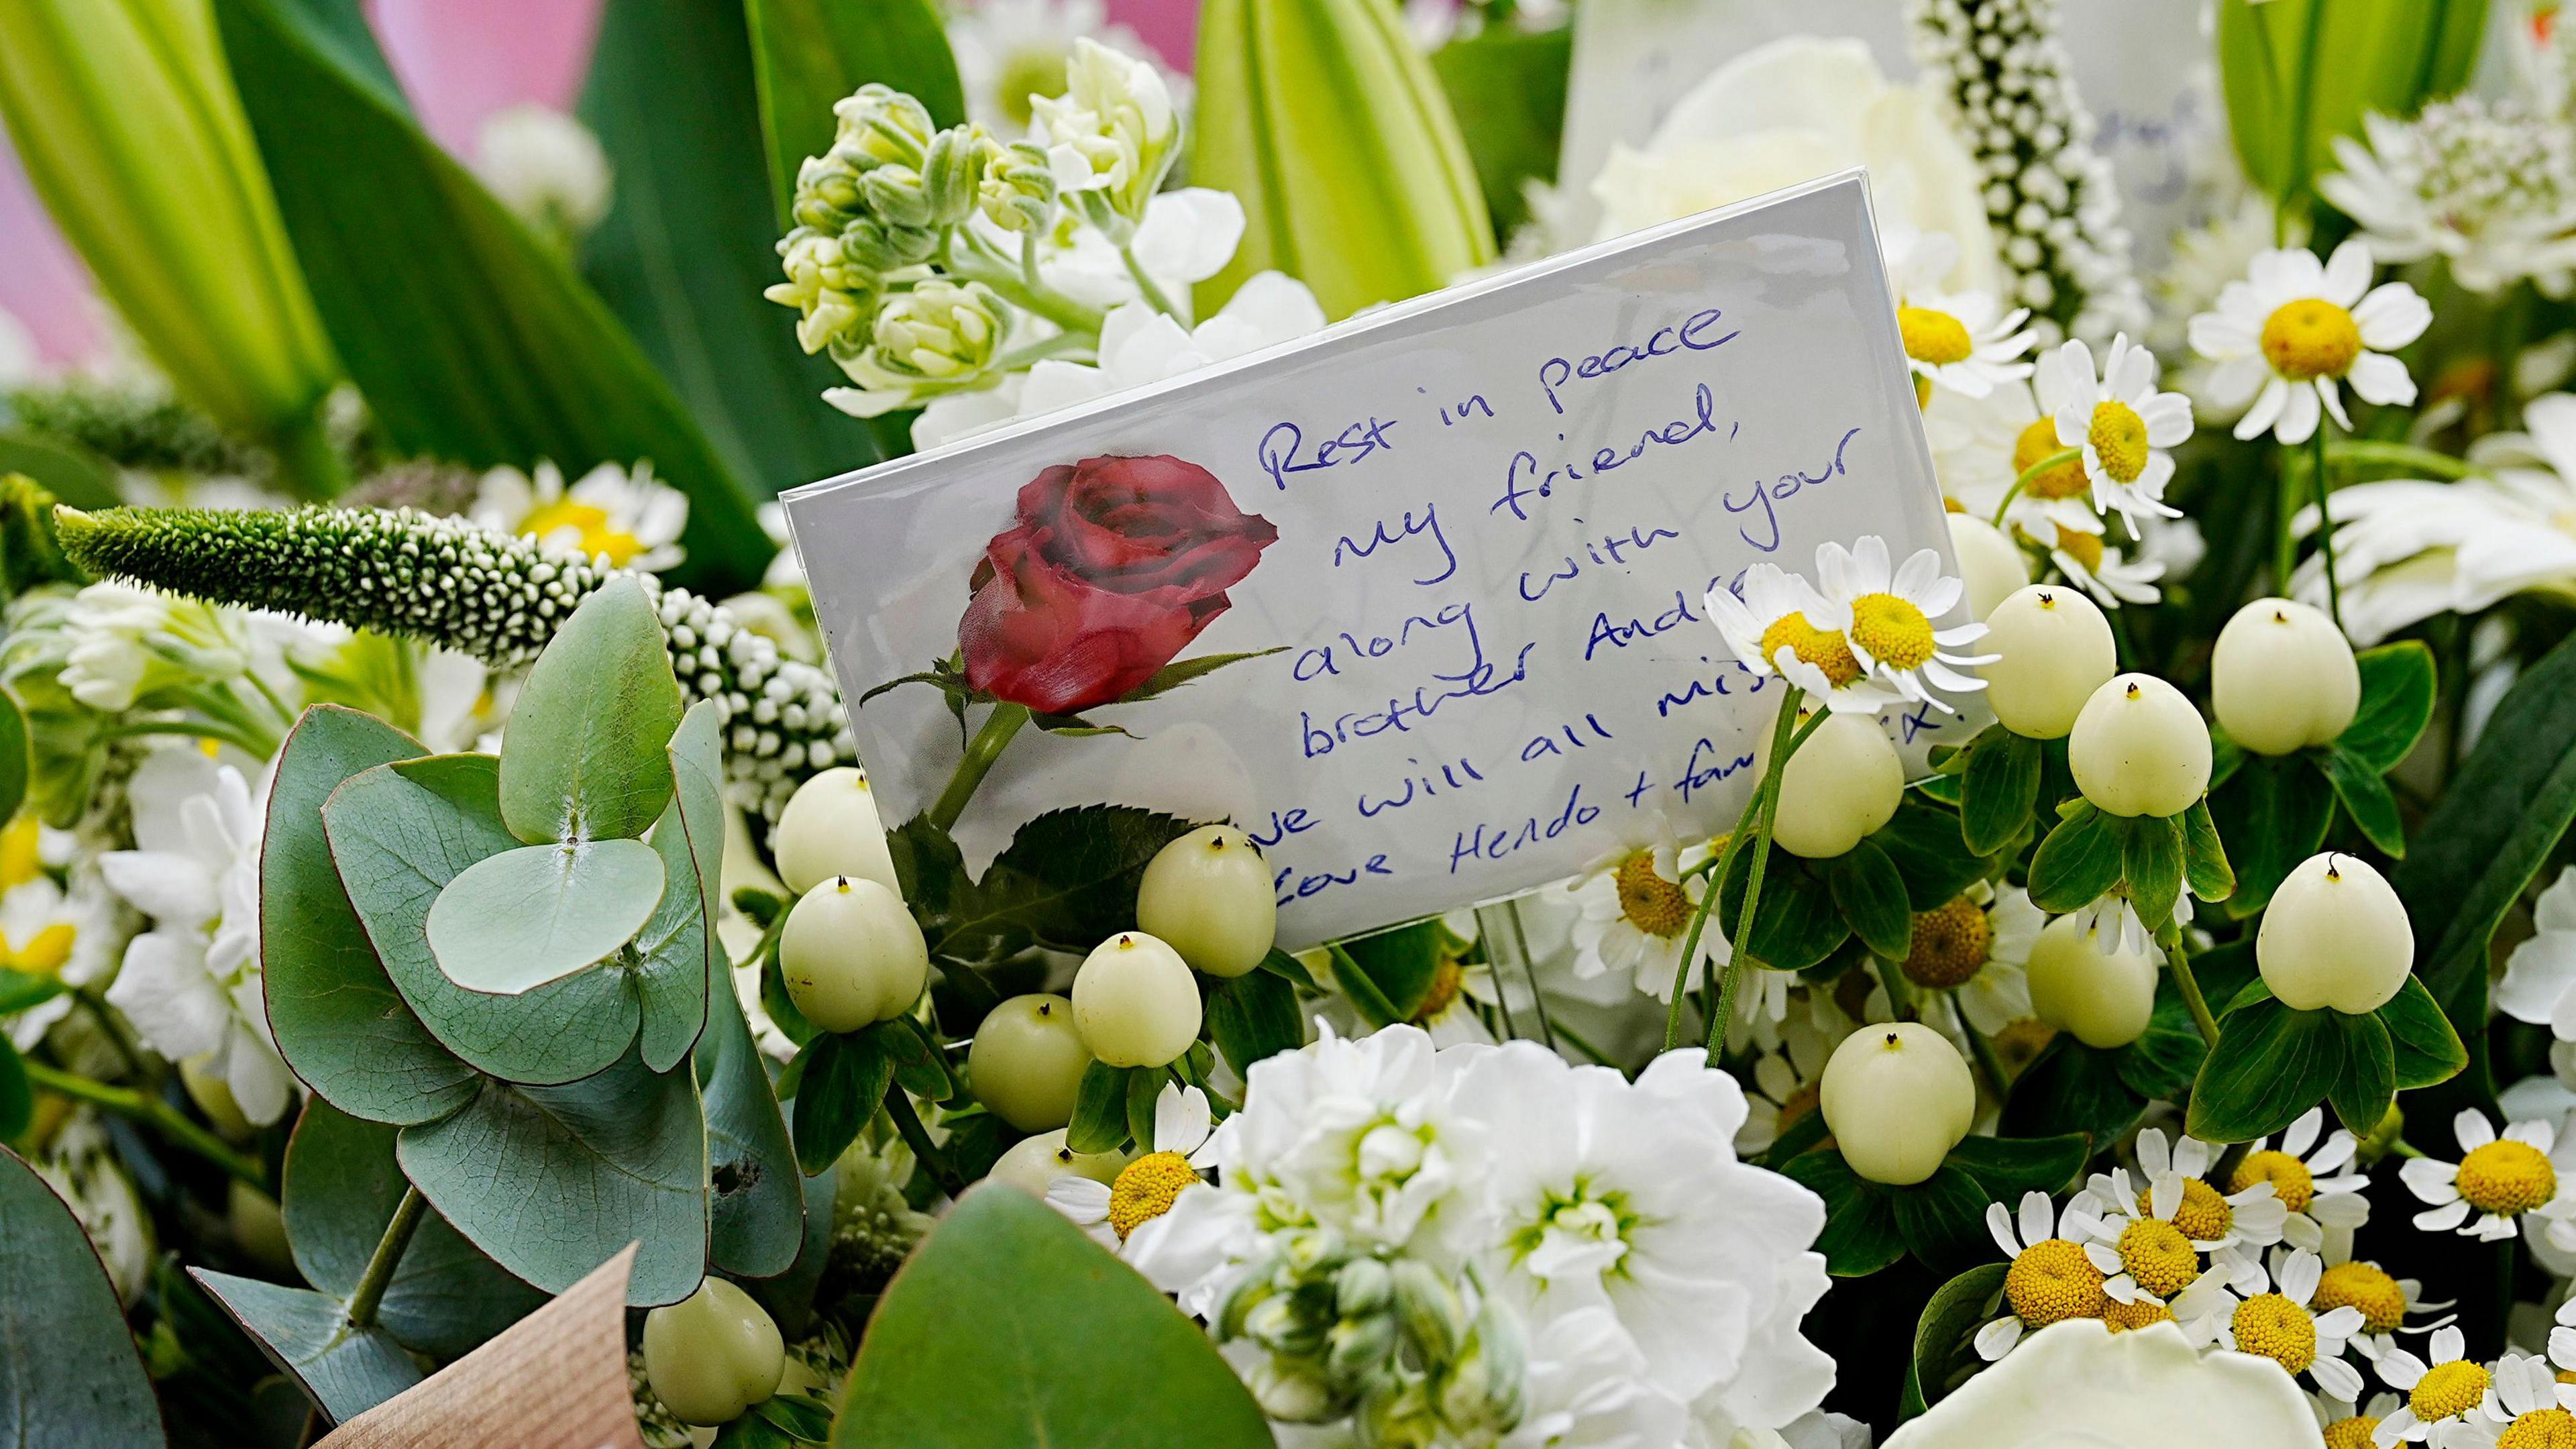 Rest in peace
my friend,
along with your
brother
we will all
Love Hendo +